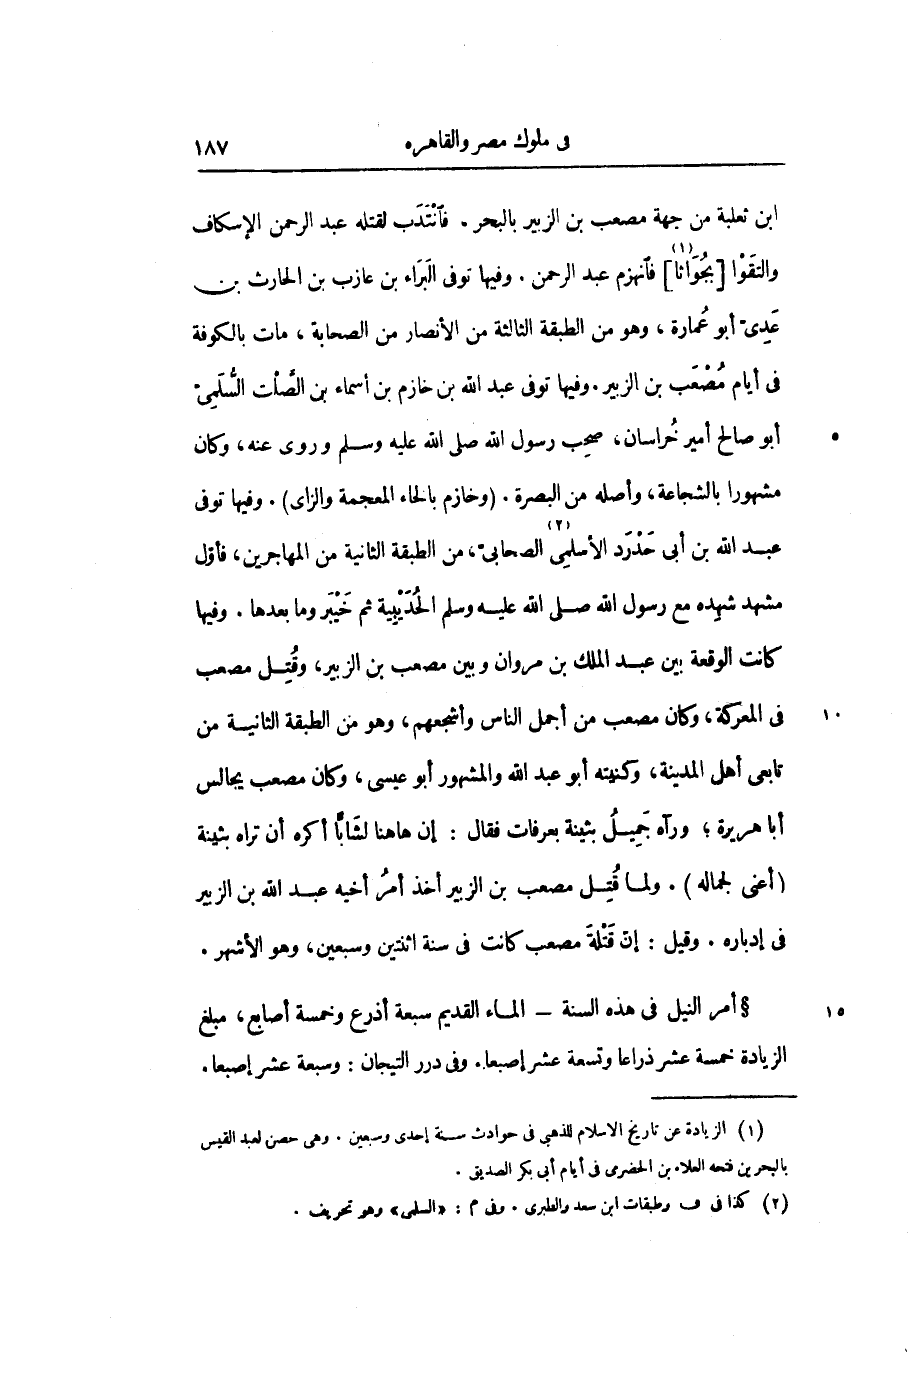 فى ملوك مصر والقاهره ١٨٧
ابن ثعلبة من جهة مصعب بن الزبير بالبحر . فٱنْتَدَب لقتله عبد الرحمن الإسكاف
والتقَوْا [بجُوَاثا](١) فٱنهزم عبد الرحمن . وفيها توفى البَرَاء بن عازب بن الحارث بن
عَدِىّ أبو عُمارة ، وهو من الطبقة الثالثة من الأنصار من الصحابة ، مات بالكوفة
فى أيام مُصْعَب بن الزبير . وفيها توفى عبد الله بن خازم بن أسماء بن الصَّلْت السُّلَمِىّ
أبو صالح أمير خُراسان، صحِب رسول الله صلى الله عليه وسلم وروى عنه، وكان ٥
مشهورا بالشجاعة، وأصله من البصرة . (وخازم بالخاء المعجمة والزاى) . وفيها توفى
عبد الله بن أبى حَدْرَد الأسلمِى(٢) الصحابىّ، من الطبقة الثانية من المهاجرين، فأوّل
مشهد شهِده مع رسول الله صلى الله عليه وسلم الحُدَيْبِية ثم خَيْبَر وما بعدها . وفيها
كانت الوقعة بين عبد الملك بن مروان وبين مصعب بن الزبير، وقُتِل مصعب
فى المعركة، وكان مصعب من أجمل الناس وأشجعهم، وهو من الطبقة الثانية من ١٠
تابعى أهل المدينة، وكنيته أبو عبد الله والمشهور أبو عيسى، وكان مصعب يجالس
أبا هريرة ؛ ورآه جَمِيلُ بثينة بعرفات فقال : إن هاهنا لشَابًّا أكره أن تراه بثينة
(أعنى لجماله) . ولما قُتِل مصعب بن الزبير أخذ أمرُ أخيه عبد الله بن الزبير
فى إدباره . وقيل : إنّ قَتْلةَ مصعب كانت فى سنة اثنتين وسبعين، وهو الأشهر .
§ أمر النيل فى هذه السنة — الماء القديم سبعة أذرع وخمسة أصابع، مبلغ ١٥
الزيادة خمسة عشر ذراعا وتسعة عشر إصبعا. وفى درر التيجان : وسبعة عشر إصبعا.
(١) الزيادة عن تاريخ الاسلام للذهبى فى حوادث سنة إحدى وسبعين . وهى حصن لعبد القيس
بالبحرين فتحه العلاء بن الحضرمى فى أيام أبى بكر الصديق .
(٢) كذا فى ف وطبقات ابن سعد والطبرى . وفى م : «السلمى» وهو تحريف .